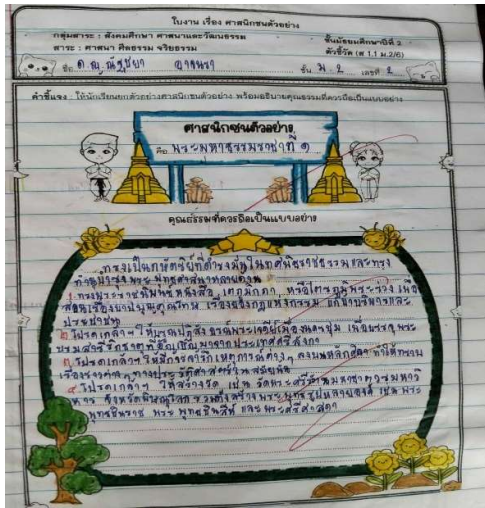 ใบงาน เรื่อง ศาสนิกชนตัวอย่าง
กลุ่มสาระ : สังคมศึกษา ศาสนาและวัฒนธรรม ชั้นมัธยมศึกษาปีที่ 2
สาระ : ศาสนา ศีลธรรม จริยธรรม ตัวชี้วัด (ส 1.1 ม.2/6)
ชื่อ ด.ญ. ชั้น ม.2 เลขที่ 2
คำชี้แจง : ให้นักเรียนยกตัวอย่างศาสนิกชนตัวอย่าง พร้อมอธิบายคุณธรรมที่ควรถือเป็นแบบอย่าง
ศาสนิกชนตัวอย่าง
คือ พระมหาธรรมราชาที่ ๑
คุณธรรมที่ควรถือเป็นแบบอย่าง
ทรงเป็นกษัตริย์ที่ดำรงมั่นในทศพิธราชธรรมและทรง
ทำนุบำรุงพระพุทธศาสนาหลายด้าน
๑. ทรงพระราชนิพนธ์หนังสือ เตภูมิกถา หรือไตรภูมิพระร่วง เพื่อ
สอนเรื่องบาปบุญคุณโทษ เรื่องของกฎแห่งกรรม แก่ข้าบริพารและ
ประชาชน
๒. โปรดเกล้าฯ ให้บูรณปฏิสังขรณ์พระเจดีย์เมืองนครชุม เพื่อบรรจุพระ
บรมสารีริกธาตุที่อัญเชิญมาจากประเทศศรีลังกา
๓. โปรดเกล้าฯ ให้มีการจารึกเหตุการณ์ต่างๆ ลงบนหลักศิลา ทำให้ทราบ
เรื่องราวต่างๆ ทางประวัติศาสตร์ในสมัยนั้น
๔. โปรดเกล้าฯ ให้สร้างวัด เช่น วัดพระศรีรัตนมหาธาตุวรมหาวิ
หาร จังหวัดพิษณุโลก รวมทั้งสร้างพระพุทธรูปหลายองค์ เช่น พระ
พุทธชินราช พระพุทธชินสีห์ และพระศรีศาสดา